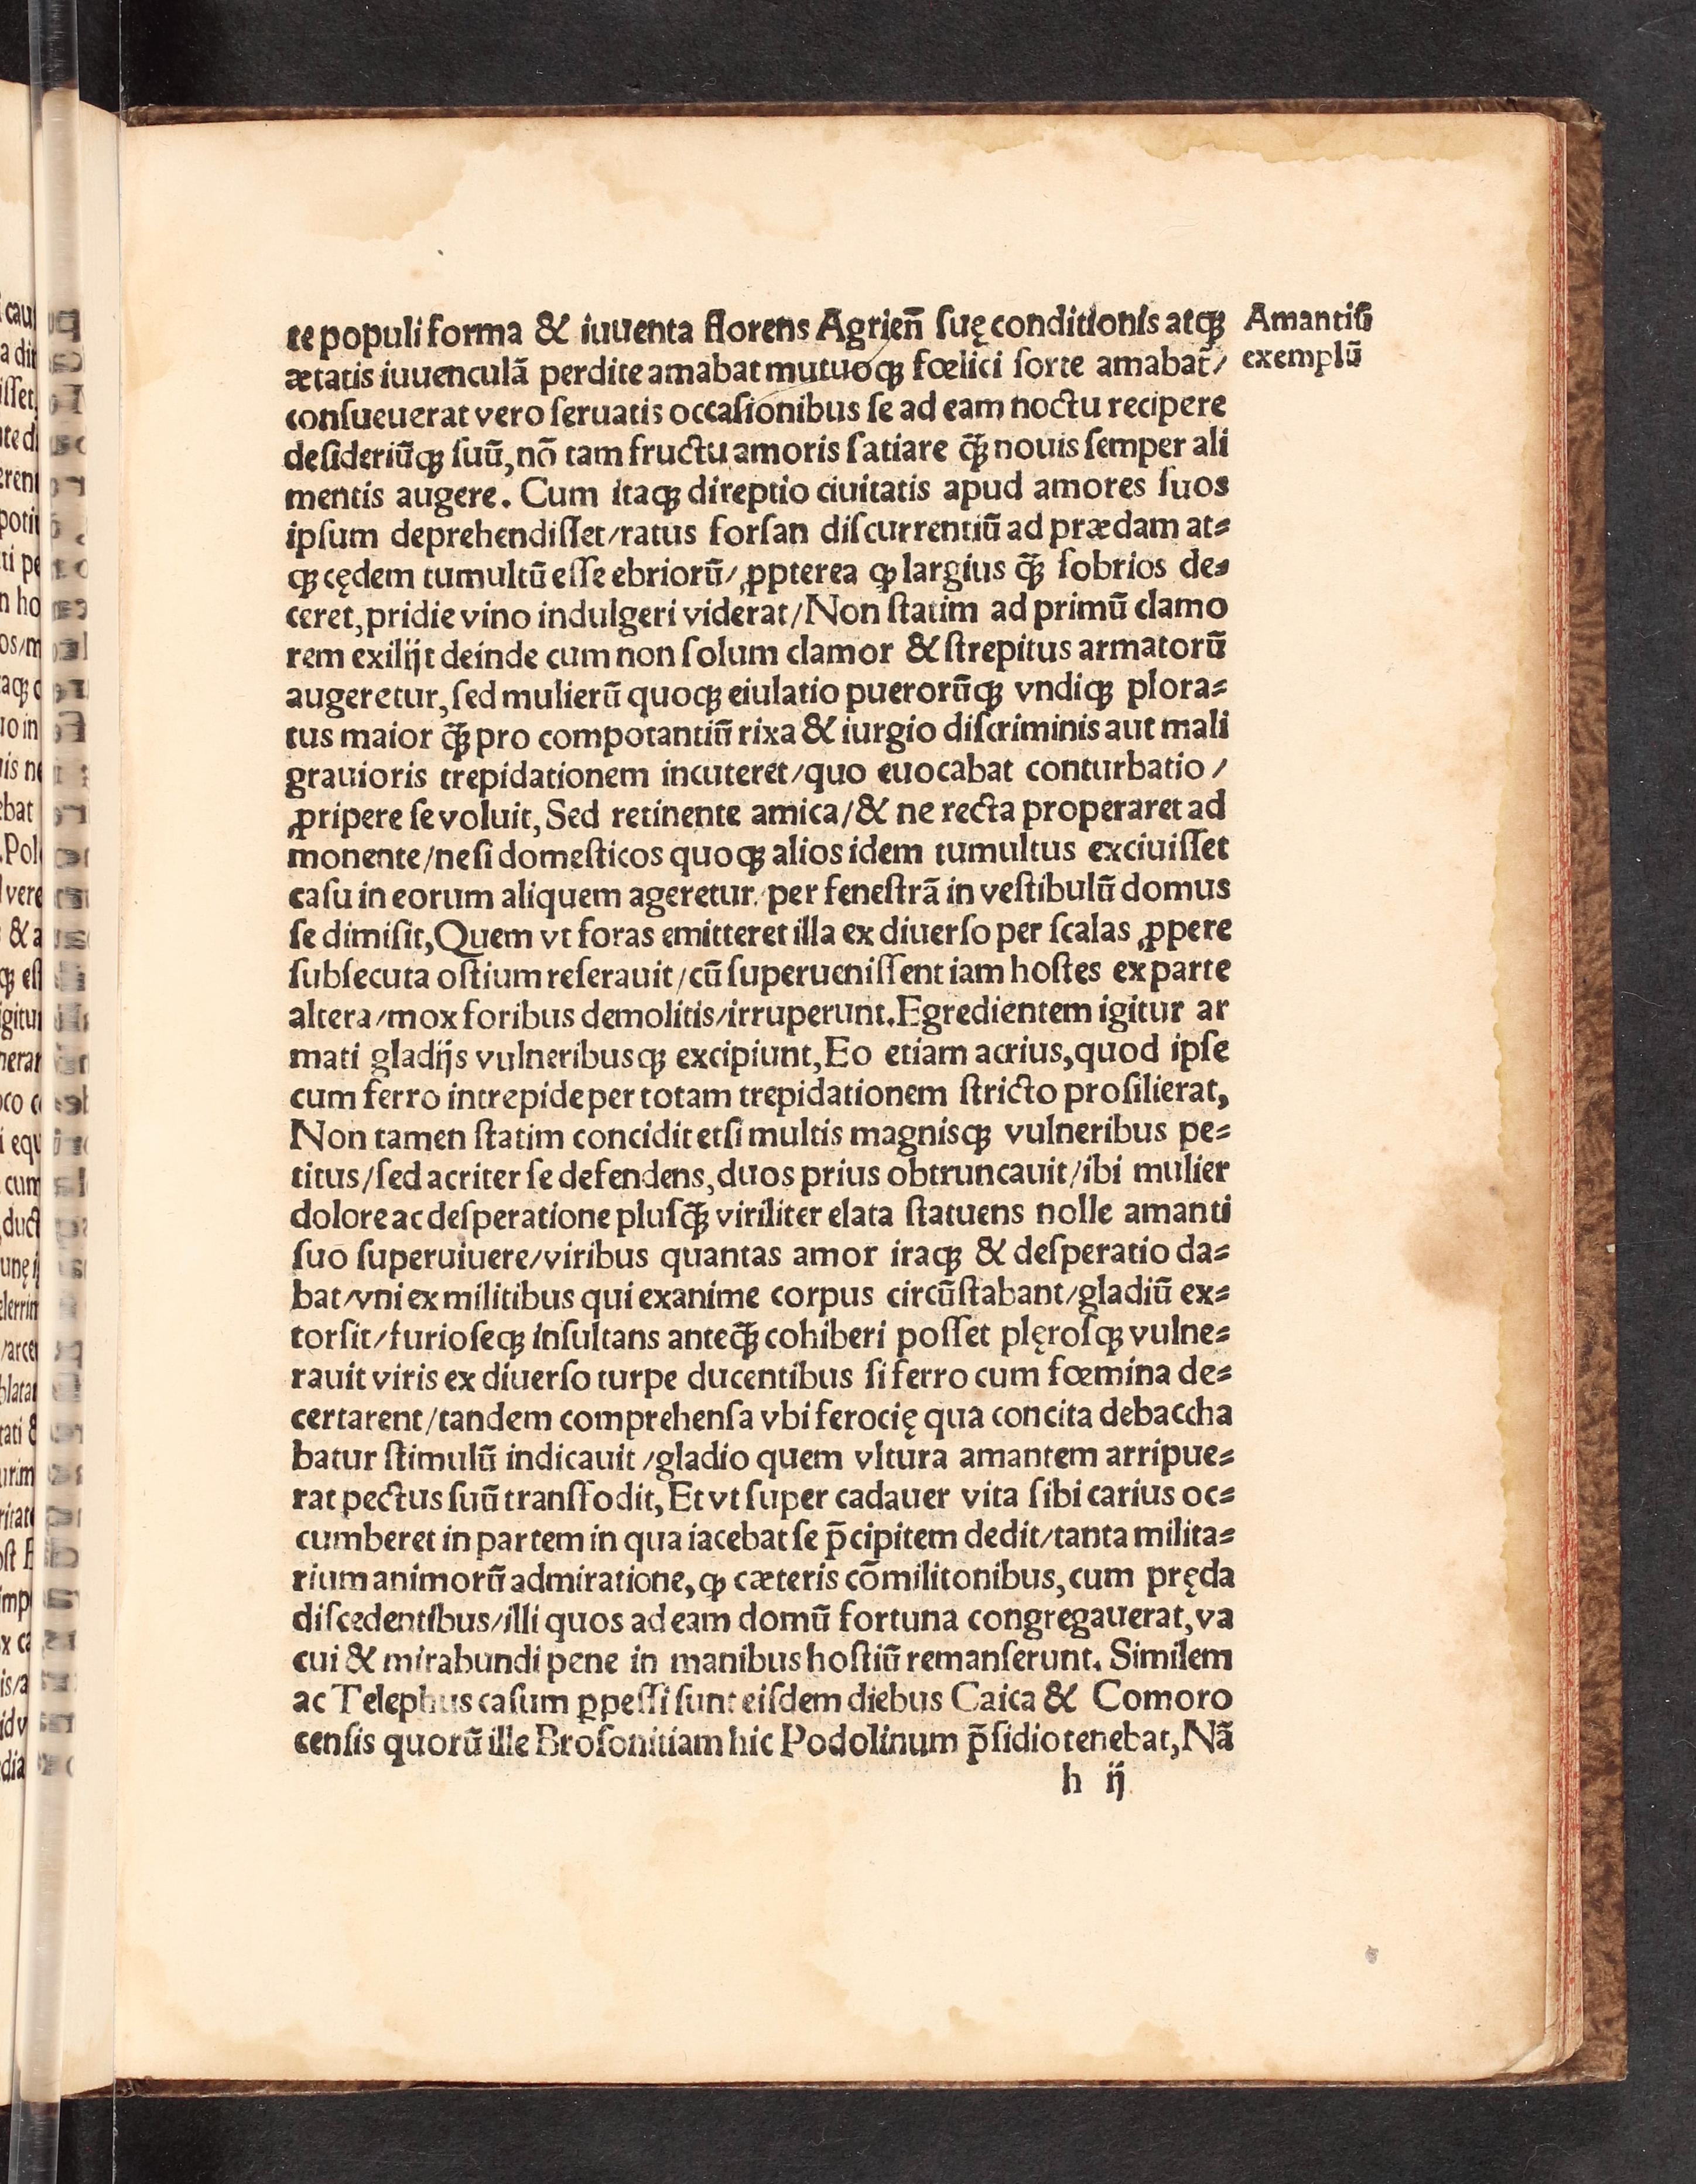 te populi forma & iuuenta florens Agrien̄ ſuę conditionis atqꝫ
ætatis iuuenculā perdite amabat mutuoqꝫ fœlici ſorte amabat̄/
conſueuerat vero ſeruatis occaſionibus ſe ad eam noctu recipere
deſideriūqꝫ ſuū, nō tam fructu amoris ſatiare q̄ꝫ nouis ſemper ali
mentis augere. Cum itaqꝫ direptio ciuitatis apud amores ſuos
ipſum deprehendiſſet/ratus forſan diſcurrentiū ad prædam at⸗
qꝫ cędem tumultū eſſe ebriorū/ ꝓpterea ꝙ largius q̄ꝫ ſobrios de⸗
ceret, pridie vino indulgeri viderat/Non ſtatim ad primū clamo
rem exilijt deinde cum non ſolum clamor & ſtrepitus armatorū
augeretur, ſed mulierū quoqꝫ eiulatio puerorūqꝫ vndiqꝫ plora⸗
tus maior q̄ꝫ pro compotantiū rixa & iurgio diſcriminis aut mali
grauioris trepidationem incuteret/quo euocabat conturbatio/
ꝓripere ſe voluit, Sed retinente amica/& ne recta properaret ad
monente/ne ſi domeſticos quoqꝫ alios idem tumultus exciuiſſet
caſu in eorum aliquem ageretur/per feneſtrā in veſtibulū domus
ſe dimiſit, Quem vt foras emitteret illa ex diuerſo per ſcalas ꝓpere
ſubſecuta oſtium reſerauit/cū ſuperueniſſent iam hoſtes ex parte
altera/mox foribus demolitis/irruperunt. Egredientem igitur ar
mati gladijs vulneribusqꝫ excipiunt, Eo etiam acrius, quod ipſe
cum ferro intrepide per totam trepidationem ſtricto proſilierat,
Non tamen ſtatim concidit etſi multis magnisqꝫ vulneribus pe⸗
titus/ſed acriter ſe defendens, duos prius obtruncauit/ibi mulier
dolore ac deſperatione pluſq̄ꝫ viriliter elata ſtatuens nolle amanti
ſuo ſuperuiuere/viribus quantas amor iraqꝫ & deſperatio da⸗
bat/vni ex militibus qui exanime corpus circūſtabant/gladiū ex⸗
torſit/furioſeqꝫ inſultans anteq̄ꝫ cohiberi poſſet plęroſqꝫ vulne⸗
rauit viris ex diuerſo turpe ducentibus ſi ferro cum fœmina de⸗
certarent/tandem comprehenſa vbi ferocię qua concita debaccha
batur ſtimulū indicauit/gladio quem vltura amantem arripue⸗
rat pectus ſuū tranſfodit, Et vt ſuper cadauer vita ſibi carius oc⸗
cumberet in partem in qua iacebat ſe p̄cipitem dedit/tanta milita⸗
rium animorū admiratione, ꝙ cæteris cōmilitonibus, cum pręda
diſcedentibus/illi quos ad eam domū fortuna congregauerat, va
cui & mirabundi pene in manibus hoſtiū remanſerunt. Similem
ac Telephus caſum ꝑpeſſi ſunt eiſdem diebus Caica & Comoro
cenſis quorū ille Broſonitiam hic Podolinum p̄ſidio tenebat, Nā
h ij
Amantiū
exemplū